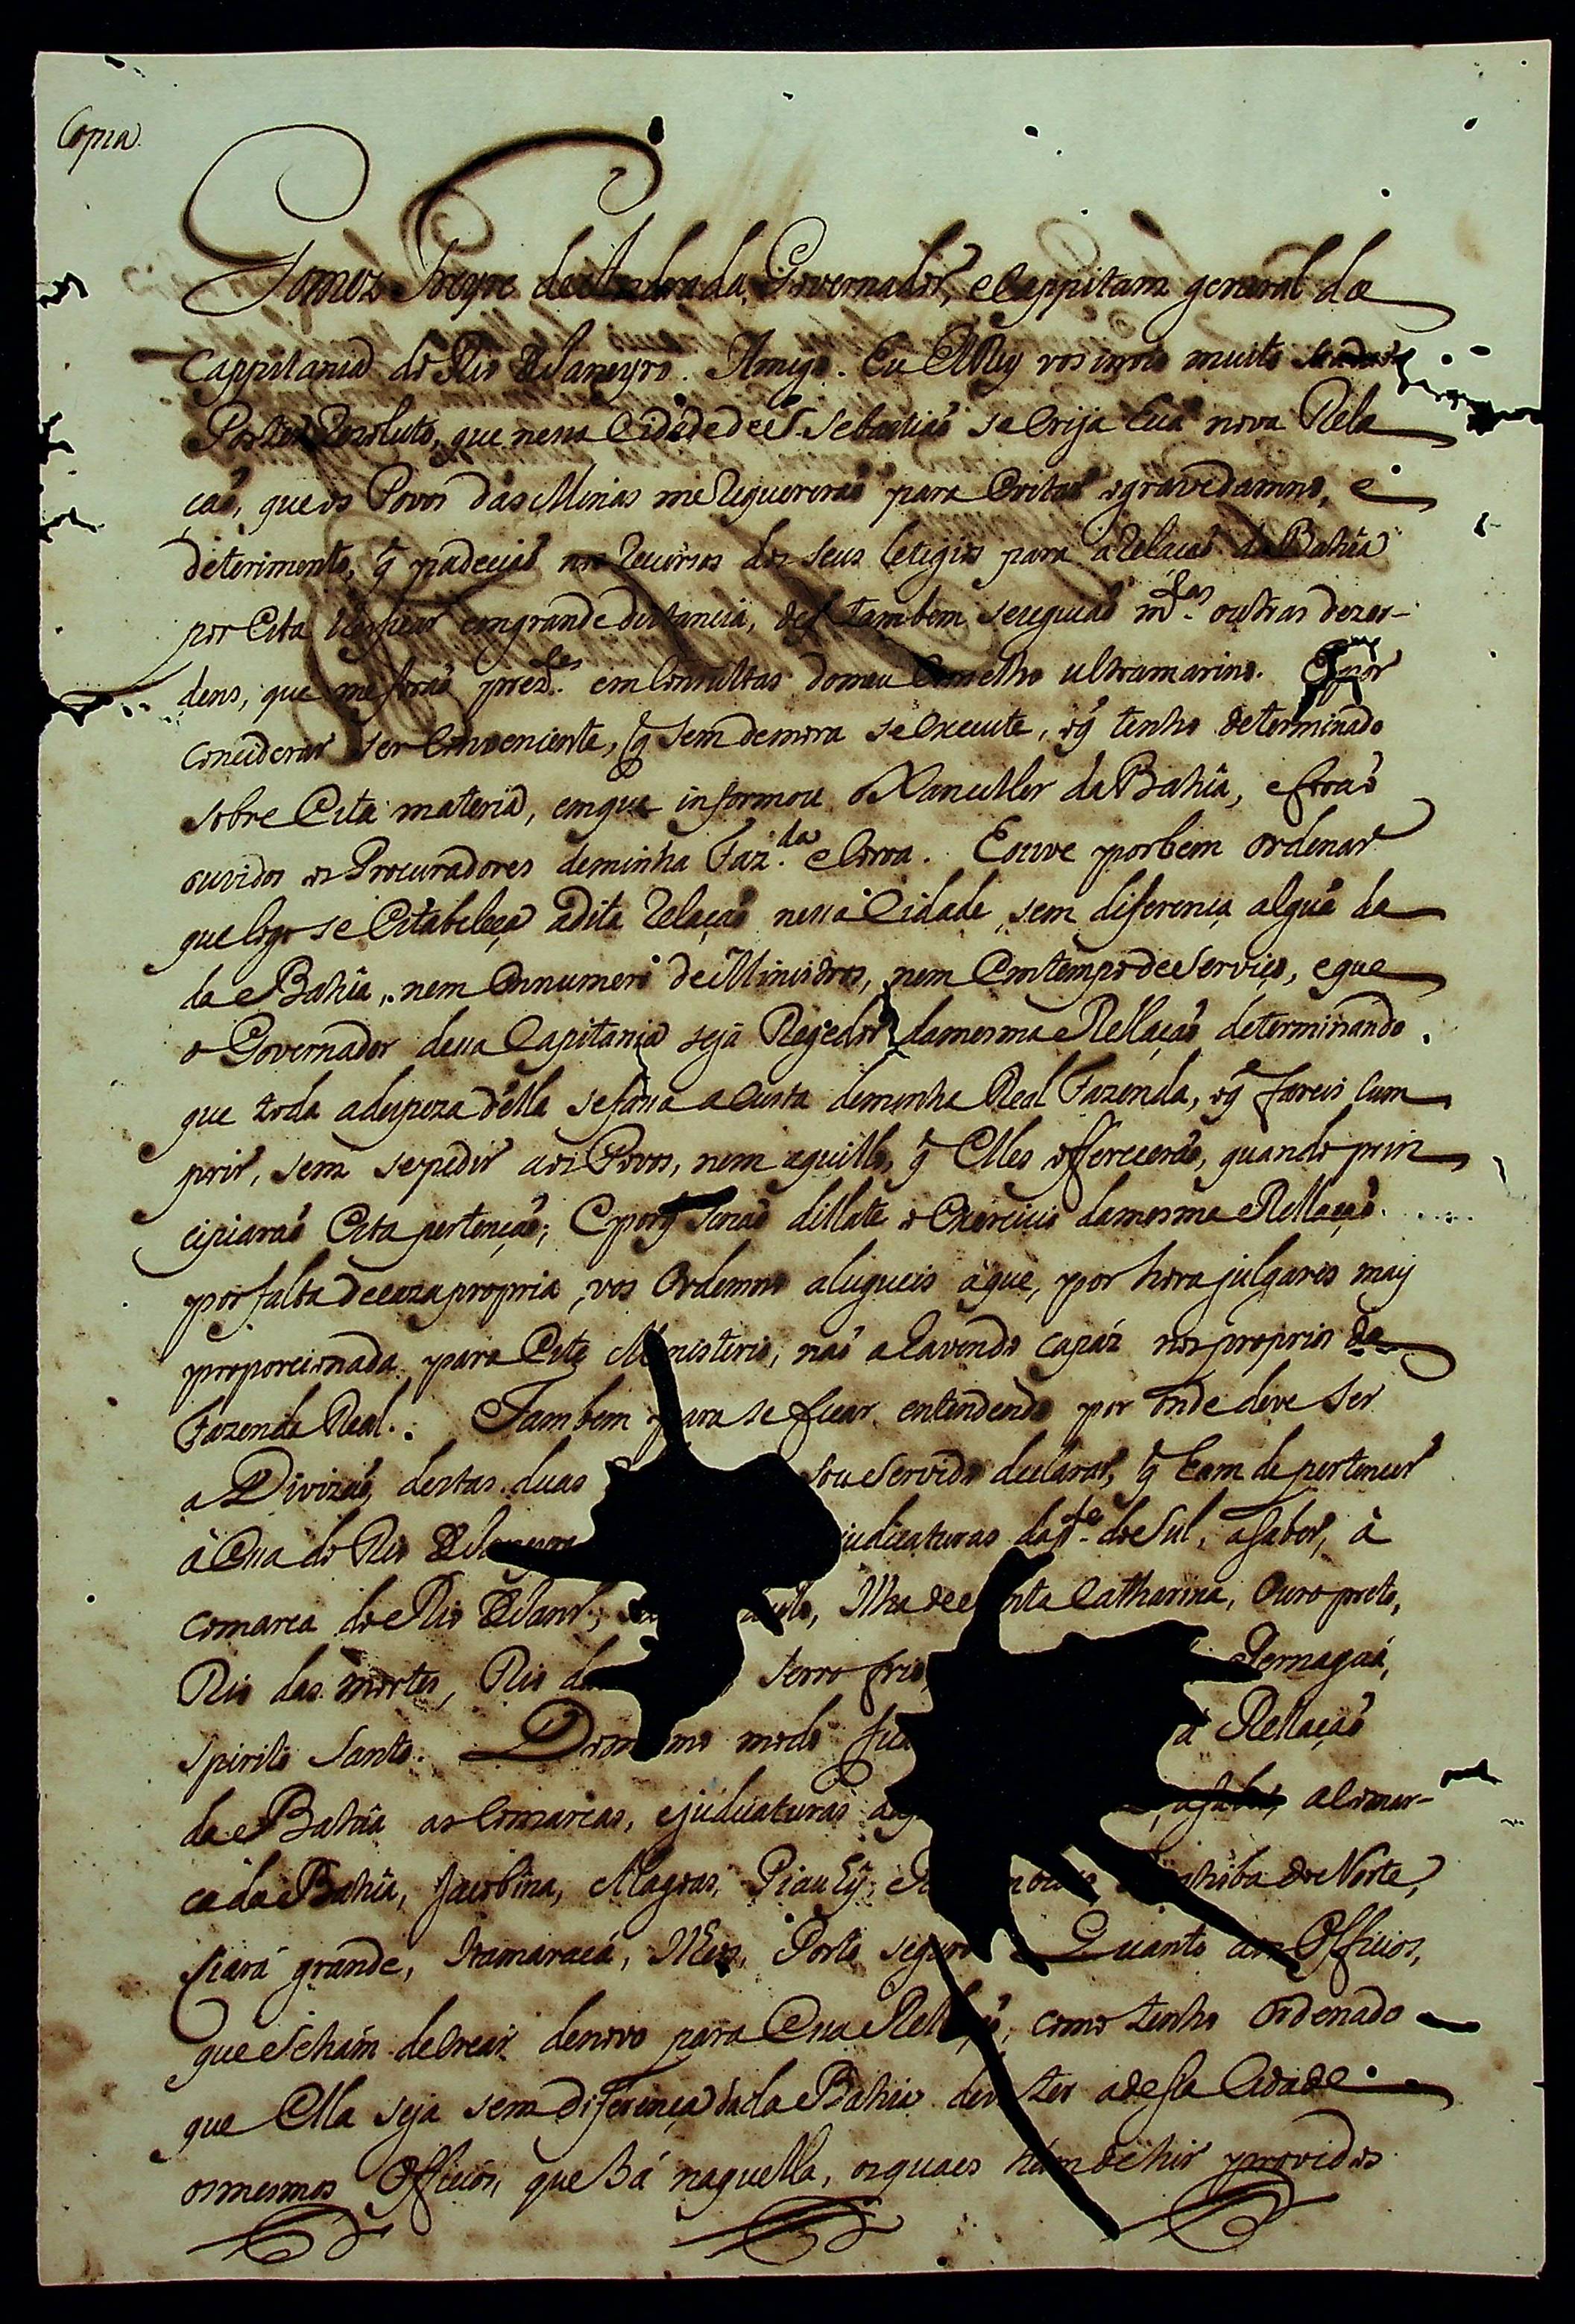 Copia.
Gomez Freyre de Andrada, Governador, e Cappitam general da
Cappitania do Rio de Janeyro. Amigo. Eu ElRey vos invio muito saudar
Por ter rezoluto, que nessa Cidade de S. Sebastiaõ se Erija hũa nova Rela
caõ, que os Povos das Minas me Requereraõ para Evitar o grave damno, e
deterimento, q̃ padeciaõ nos Recursos dos seus letigios para a Relacaõ da Bahîa
por Esta lhes ficar em grande distancia, de q̃ tambem se seguiaõ m.tas outras dezor-
dens, que me foraõ prez.tes em Consultas do meu Conselho ultramarino. E por
conciderar ser Conveniente, q̃ sem demora se Execute, o q̃ tenho determinado
sobre Esta materia, em que informou o Xanceller da Bahîa, e foraõ
ouvidos os Procuradores de minha Faz.da e Coroa. Houve por bem ordenar
que logo se Estabeleça a dita Relaçaõ nessa Cidade, sem diferença algũa da
da Bahîa, nem Em numero de Ministros, nem Em tempo de Serviço, e que
o Governador dessa Capitania seja Regedor da mesma Rellaçaõ, determinando
que toda a despeza d'ella se faça a Custa de minha Real Fazenda, o q̃ fareis Cum
prir, sem se pedir aos Povos, nem aquillo, q̃ Elles offereceraõ, quando prin
cipiaraõ Esta pertençaõ; E por q̃ se naõ dillate o Exercicio da mesma Rellaçaõ.
por falta de caza propria, vos Ordemno alugueis a que, por hora julgares mais
proporcionada para Este Ministerio, naõ a havendo capáz nos proprios da
Fazenda Real. Tambem para se ficar entendendo por onde deve ser
a Divizaõ, destas duas sou Servido declarar, q̃ ham de pertencer
à Essa do Rio de Janeyro judicaturas da p.te do Sul, a saber, à
comarca do Rio de Janr.º, Ilha de Santa Catharina, Ouro preto,
Rio das mortes, Rio da serro frio Pernaguá,
Spirito Santo. Do mesmo modo a Rellaçaõ
da Bahîa as Comarcas, e judicaturas a saber, a Comar-
ca da Bahîa, Jacobina, Alagoas, Piauhÿ, do Norte,
Siará grande, Itamaracá, Ilheos, Porto seguro Quanto aos Officios,
que se hám de Crear de novo para Essa Rellaçaõ, como tenho Ordenado
que Ella seja sem diferença da da Bahia ter a dessa Cidade
os mesmos Officios, que há naquella, os quaes ham de hir providos